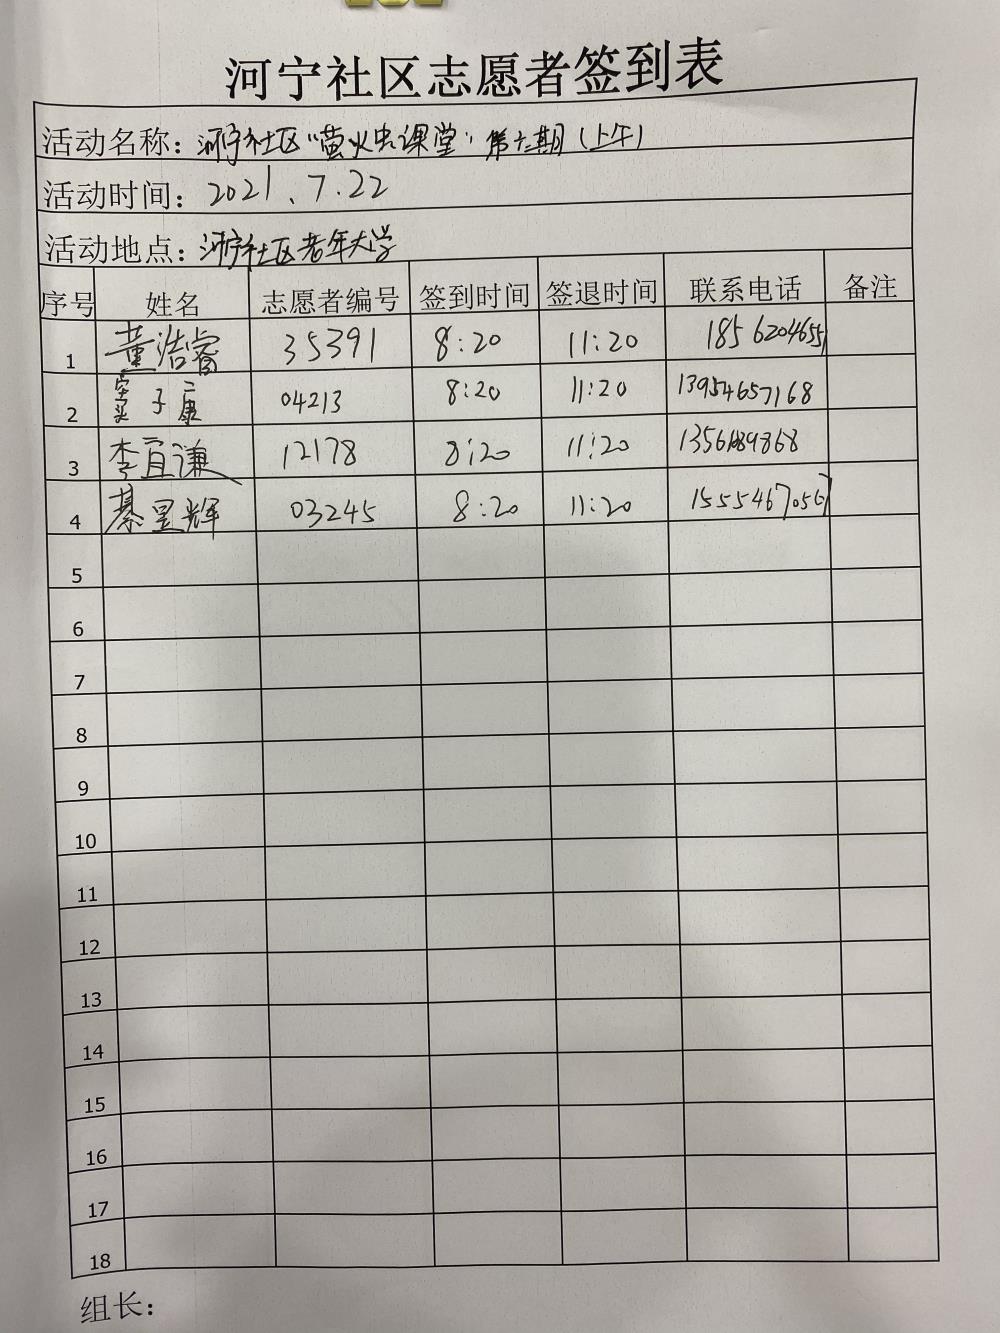 河宁社区志愿者签到表
活动名称：河宁社区"萤火虫课堂"第十二期（上午）
活动时间：2021、7.22
活动地点：河宁社区老年大学
序号 姓名 志愿者编号 签到时间 签退时间 联系电话 备注
1 董浩睿 35391 8:20 11:20 18562046551
2 窦子康 04213 8:20 11:20 13954657168
3 李宜谦 12178 8:20 11:20
4 綦昱辉 03245 8:20 11:20 15554670567
5
6
7
8
9
10
11
12
13
14
15
16
17
18
组长：